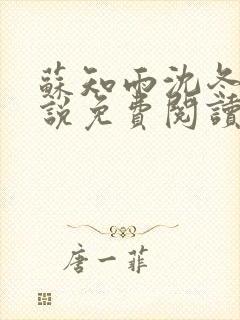 蘇知雨沈冬
說免費閱讀
唐一菲